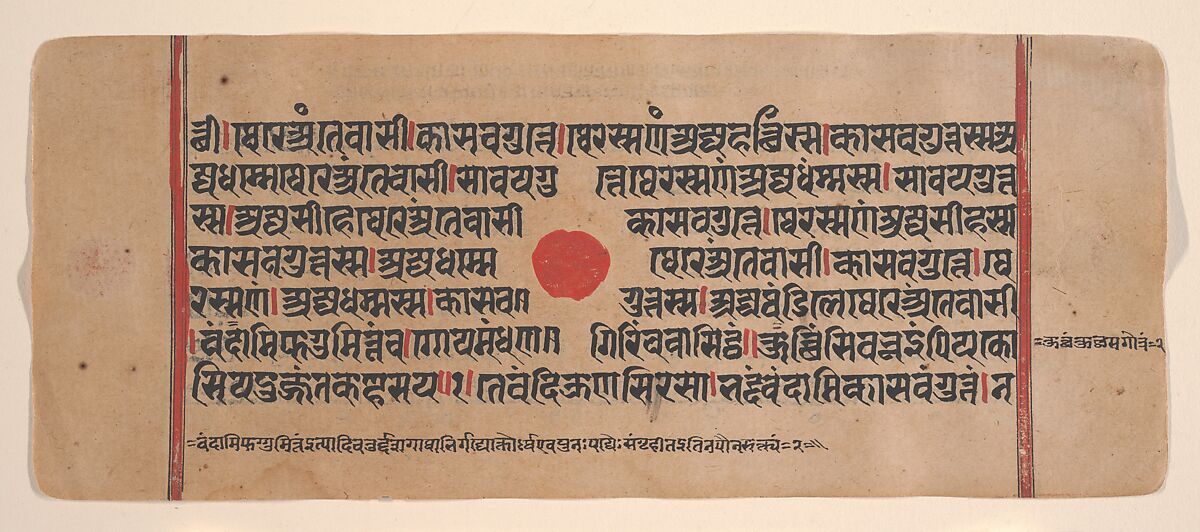 त्थी।थेरेअंतेवासी।कासवगुत्ते।थेरस्सणंअज्जहत्थिस्स।कासवगुत्तस्सअ
ज्जधम्मेथेरेअंतेवासी।सावयगुत्तेथेरस्सणंअज्जधंम्मस्स।सावयगुत्त
स्स।अज्जसीहेथेरेअंतेवासी कासवगुत्ते।थेरस्सणंअज्जसीहस्स
कासवगुत्तस्स।अज्जधम्मे थेरेअंतेवासी।कासवगुत्ते।थे
रस्सणं।अज्जधम्मस्स।कासव गुत्तस्स।अज्जसंडिल्लेथेरेअंतेवासी
।वंदामिफग्गुमित्तंच।गोयमंधण गिरिंचवासिट्ठं॥कुच्छिंसिवभूइंपियको
सियदुज्जंतकण्हेसय॥१।तेवंदिऊणसिरसा।भद्दंवंदामिकासवंगुत्तं।न
=कुच्छंकुच्छसगोत्रं=२
=वंदामिफग्गुमित्तंइत्यादिचतुर्दशगाथाभिर्गद्योक्तोऽर्थएवपुनःपद्यैःसंगृहीतइतिनपौनरुक्त्यं=२=॥